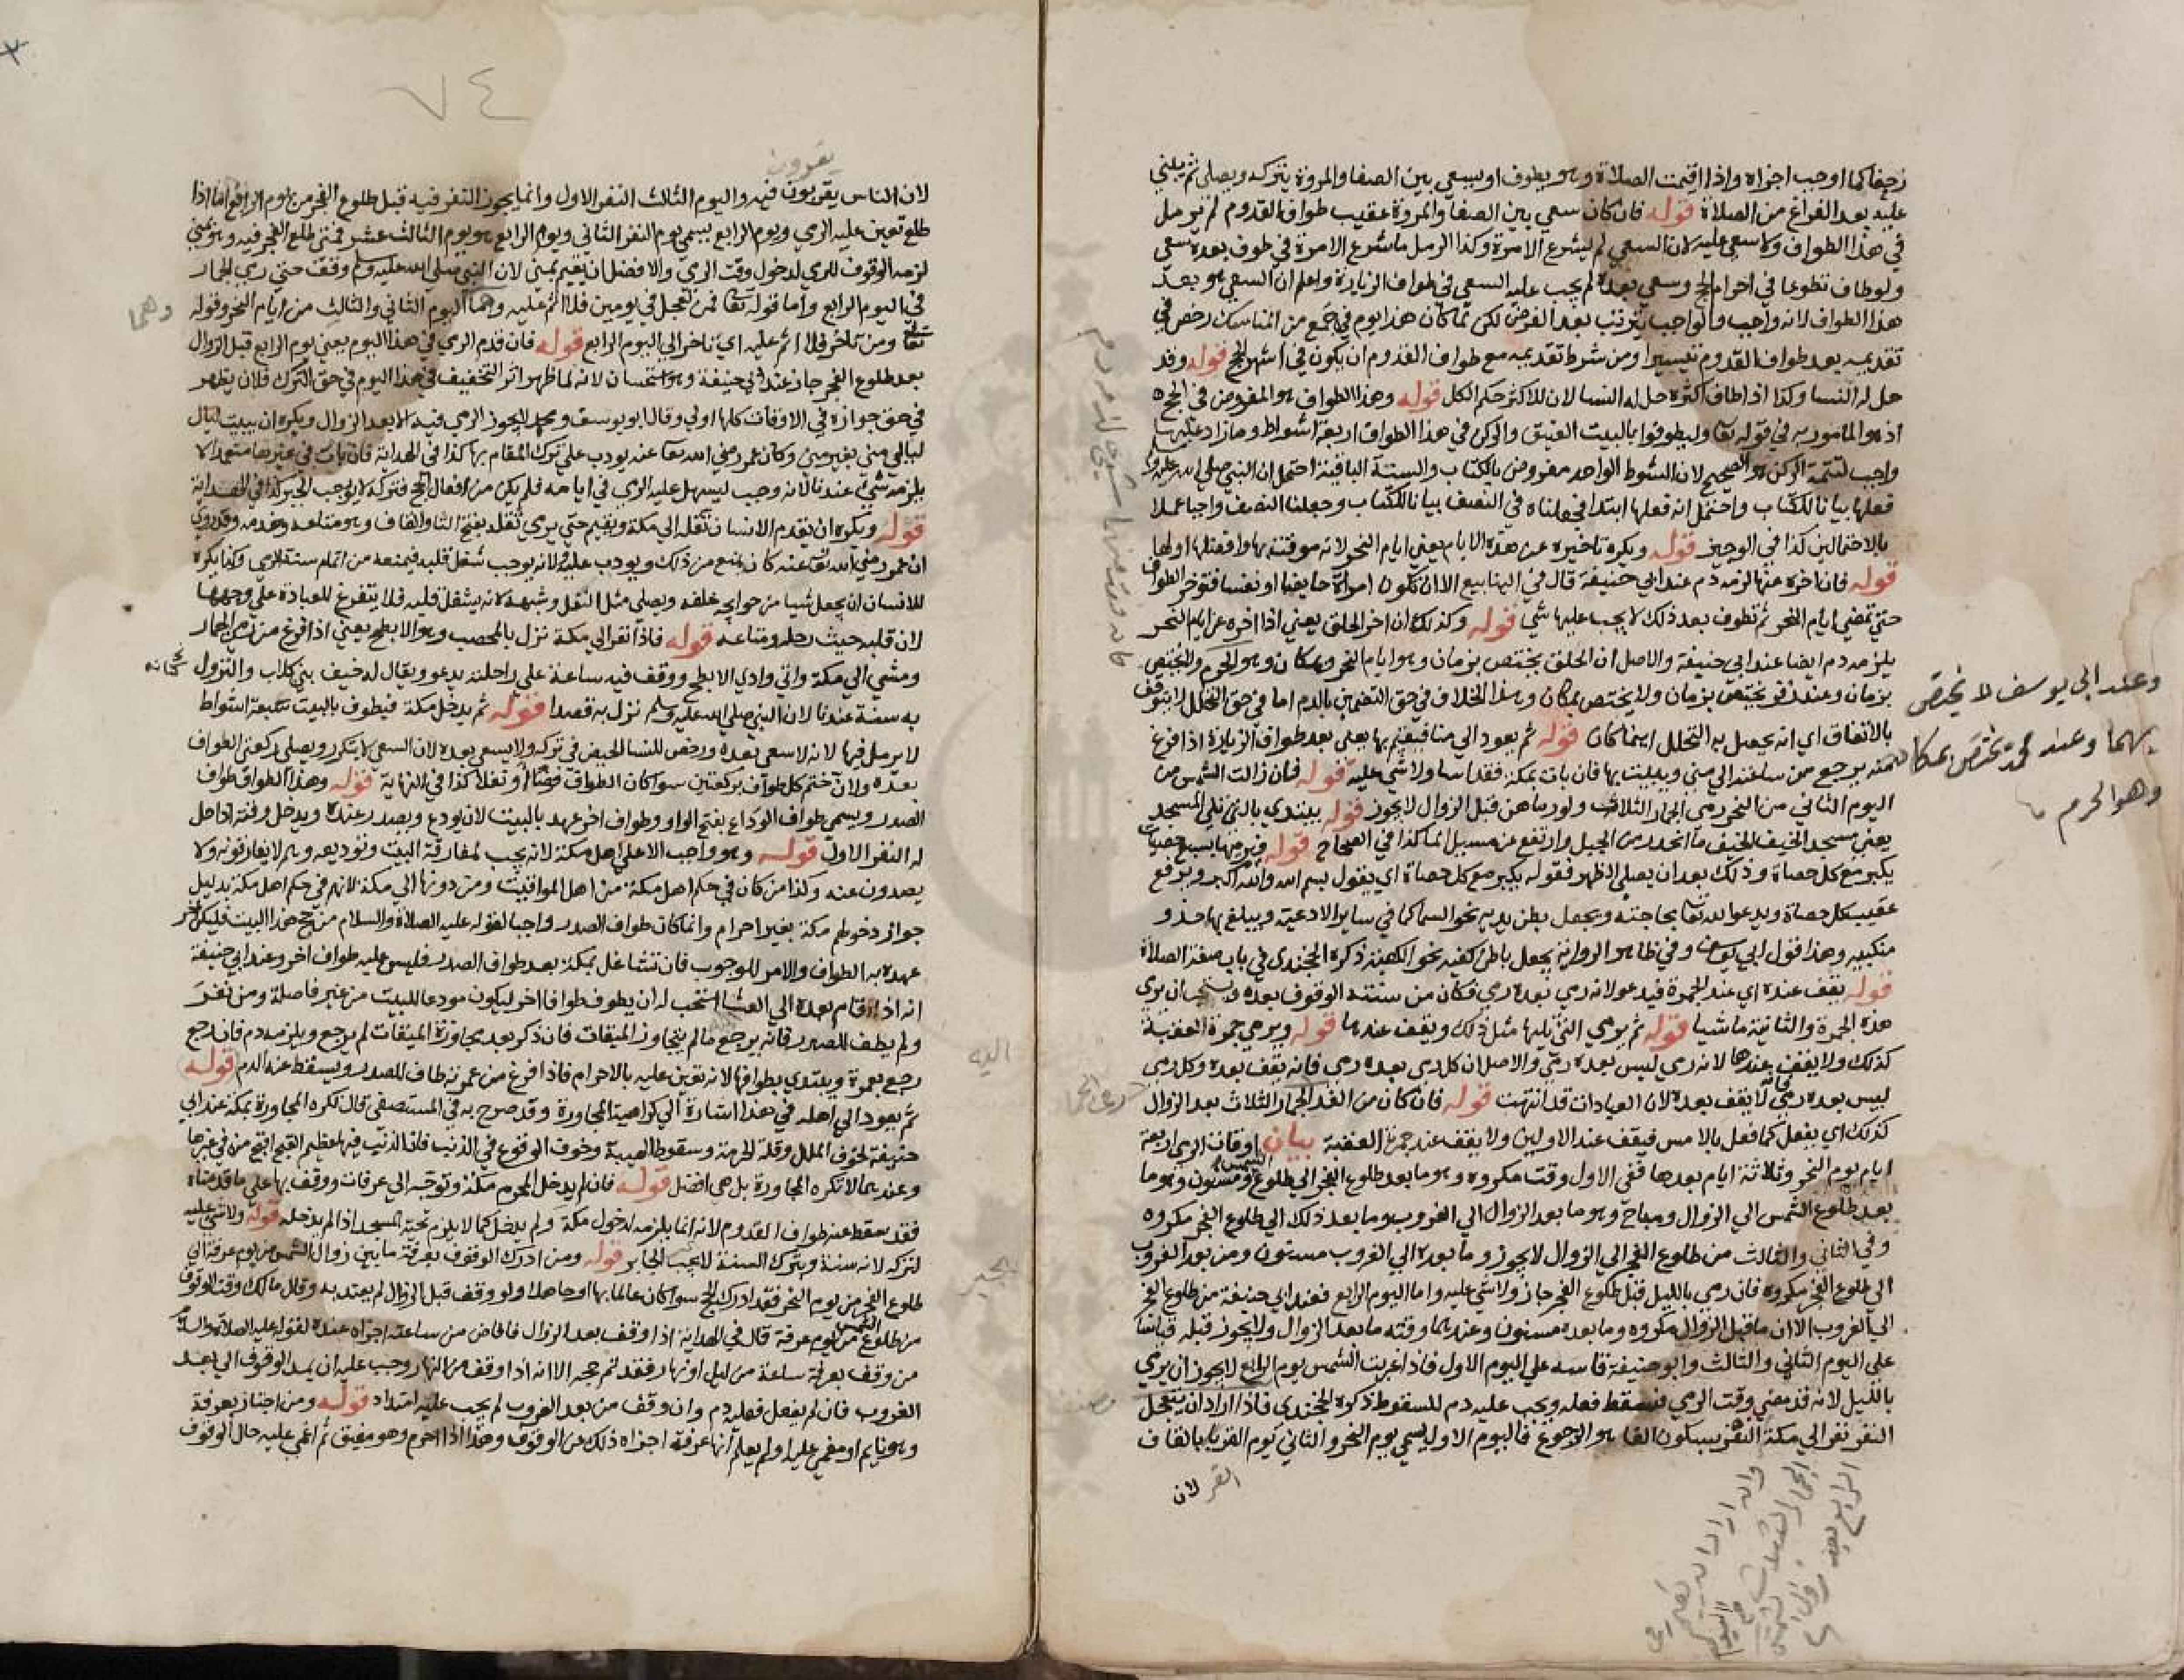 زحفا كما اوجب اجزاه واذا اقيمت الصلاة وهو يطوف او يسعى بين الصفا والمروة يتركه ويصلي ثم يبني
عليه بعد الفراغ من الصلاة قوله فان كان سعى بين الصفا والمروة عقيب طواف القدوم لم يرمل
في هذا الطواف ولا سعي عليه لان السعي لم يشرع الا مرة وكذا الرمل ما شرع الا مرة في طوف بعده سعي
ولو طاف تطوعا في احرام الحج وسعى بعده لم يجب عليه السعي في طواف الزيارة واعلم ان السعي هو بعد
هذا الطواف لانه واجب والواجب يترتب بعد الفرض لكن لما كان هذا يوم في جمع من المناسك رخص في
تقديمه بعد طواف القدوم تيسيرا ومن شرط تقديمه مع طواف القدوم ان يكون في اشهر الحج قوله وقد
حل له النسا وكذا اذا طاف اكثره حل له النسا لان للاكثر حكم الكل قوله وهذا الطواف هو المفروض في الحج
اذ هو المامور به في قوله تعا وليطوفوا بالبيت العتيق والركن في هذا الطواف اربعة اشواط وما زاد عليها
واجب لتتمة الركن هو الصحيح لان الشوط الواحد مفروض بالكتاب والستة الباقية احتمل ان النبي صلى الله عليه و
فعلها بيانا للكتاب واحتمل انه فعلها ابتدا فجعلناه في النصف بيانا للكتاب وجعلنا النصف واجبا عملا
بالاحتمالين كذا في الوجيز قوله ويكره تاخيره عن هذه الايام يعني ايام النحر لانه موقتة بها وافضلها اولها
قوله فان اخره عنها لزمه دم عند ابي حنيفة قال في الينابيع الا ان تكون امراة حايضا او نفسا فتوخر الطواف
حتى تمضي ايام النحر ثم تطوف بعد ذلك لا يجب عليها شي قوله وكذلك ان اخر الحلق يعني اذا اخره عن ايام النحر
يلزمه دم ايضا عند ابي حنيفة والاصل ان الحلق يختص بزمان وهو ايام النحر ومكان وهو الحرم ولا يختص
بزمان وعند زفر يختص بزمان ولا يختص بمكان وهذا الخلاف في حق التضمين بالدم اما في حق التحلل لا يتوقف
بالاتفاق اي انه يحصل به التحلل اينما كان قوله ثم يعود الى منا فيقيم بها يعني بعد طواف الزيارة اذا فرغ
منه يرجع من ساعته الى منى ويبيت بها فان بات بمكة فقد اسا ولا شي عليه قوله فان زالت الشمس من
اليوم الثاني من النحر رمى الجمار الثلاث ولو رماهن قبل الزوال لا يجوز قوله يبتدي بالتي تلي المسجد
يعني مسجد الخيف الخيف ما انحدر من الجبل وارتفع عن مسيل الما كذا في الصحاح قوله فيرميها بسبع حصيات
يكبر مع كل حصاة وذلك بعد ان يصلي الظهر فقوله يكبر مع كل حصاة اي يقول بسم الله والله اكبر ويرفع
عقيب كل حصاة ويدعوا الله تعا بحاجته ويجعل بطن يديه نحو السما كما في ساير الادعية ويبلغ بها حذو
منكبيه وهذا قول ابي يوسف وفي ظاهر الرواية يجعل باطن كفيه نحو الكعبة ذكره الخجندي في باب صفة الصلاة
قوله يقف عنده اي عند الجمرة فيدعو لانه رمي بعده رمي فكان من سنته الوقوف بعده ويستحب ان يرمي
هذه الجمرة والثانية ماشيا قوله ثم يرمي التي يليها مثل ذلك ويقف عندها قوله ويرمي جمرة العقبة
كذلك ولا يقف عندها لانه رمي ليس بعده رمي والاصل ان كل رمي بعده رمي فانه يقف بعده وكل رمي
ليس بعده رمي لا يقف بعده لان العبادات قد انتهت قوله فان كان من الغد رمى الجمار الثلاث بعد الزوال
كذلك اي يفعل كما فعل بالامس فيقف عند الاوليين ولا يقف عند جمرة العقبة بيان اوقات الرمي اربعة
ايام يوم النحر وثلاثة ايام بعدها ففي الاول وقت مكروه وهو ما بعد طلوع الفجر الى طلوع الشمس ومسنون وهو ما
بعد طلوع الشمس الى الزوال ومباح وهو ما بعد الزوال الى الغروب وما بعد ذلك الى طلوع الفجر مكروه
وفي الثاني والثالث من طلوع الفجر الى الزوال لا يجوز وما بعده الى الغروب مسنون ومن بعد الغروب
الى طلوع الفجر مكروه فان رمى بالليل قبل طلوع الفجر جاز ولا شي عليه واما اليوم الرابع فعند ابي حنيفة من طلوع الفجر
الى الغروب الا ان ما قبل الزوال مكروه وما بعده مسنون وعندهما وقته ما بعد الزوال ولا يجوز قبله قياسا
على اليوم الثاني والثالث وابو حنيفة قاسه على اليوم الاول فاذا غربت الشمس يوم الرابع لا يجوز ان يرمي
بالليل لانه قد مضى وقت الرمي فسقط فعله ويجب عليه دم للسقوط ذكره الخجندي فاذا اراد ان يتعجل
النفر نفر الى مكة النفر بسكون الفا هو الرجوع فاليوم الاول يسمى يوم النحر والثاني يوم القر بالقاف
لان
وعند ابي يوسف لا يختص
بهما وعند محمد يختص بمكان
وهو الحرم
٧٤
لان الناس يقربون فيه واليوم الثالث النفر الاول وانما يجوز النفر فيه قبل طلوع الفجر من يوم الرابع اما اذا
طلع تعين عليه الرمي ويوم الرابع يسمى يوم النفر الثاني ويوم الرابع هو يوم الثالث عشر فمتى طلع الفجر فيه وهو بمنى
لزمه الوقوف للرمي لدخول وقت الرمي والافضل ان يقيم بمنى لان النبي صلى الله عليه وسلم وقف حتى رمى الجمار
في اليوم الرابع واما قوله تعا فمن تعجل في يومين فلا اثم عليه وهما اليوم الثاني والثالث من ايام النحر وقوله
تعا ومن تاخر فلا اثم عليه اي تاخر الى اليوم الرابع قوله فان قدم الرمي في هذا اليوم يعني يوم الرابع قبل الزوال
بعد طلوع الفجر جاز عند ابي حنيفة وهو استحسان لانه لما ظهر اثر التخفيف في هذا اليوم في حق الترك فلان يظهر
في حق جوازه في الاوقات كلها اولى وقال ابو يوسف ومحمد لا يجوز الرمي فيه الا بعد الزوال ويكره ان يبيت ليال
ليالي منى بغير منى وكان عمر رضي الله تعا عنه يودب على ترك المقام بها كذا في الهداية فان بات في غيرها متعمدا لا
يلزمه شي عندنا لانه وجب ليسهل عليه الرمي في ايامه فلم يكن من افعال الحج فتركه لا يوجب الجبر كذا في الهداية
قوله ويكره ان يقدم الانسان ثقله الى مكة ويقيم حتى يرمي ثقله بفتح الثا والقاف وهو متاعه وخدمه وقد روي
ان عمر رضي الله تعا عنه كان يمنع من ذلك ويودب عليه لانه يوجب شغل قلبه فيمنعه من اتمام سنة الرمي وكذا يكره
للانسان ان يجعل شيا من حوايجه خلفه ويصلي مثل النعل وشبهه لانه يشغل قلبه فلا يتفرغ للعبادة على وجهها
لان قلبه حيث رحله ومتاعه قوله فاذا نفر الى مكة نزل بالمحصب وهو الابطح يعني اذا فرغ من رمي الجمار
ومشى الى مكة واتى وادي الابطح ووقف فيه ساعة على راحلته يدعو ويقال له خيف بني كنانه والنزول
به سنة عندنا لان النبي صلى الله عليه وسلم نزل به قصدا قوله ثم يدخل مكة فيطوف بالبيت سبعة اشواط
لا يرمل فيها لانه لا سعي بعده ورخص للنسا الحيض في تركه ولا يسعى بعده لان السعي لا يتكرر ويصلي ركعتي الطواف
بعده ولان ختم كل طواف بركعتين سوا كان الطواف فرضا او نفلا كذا في النهاية قوله وهذا الطواف طواف
الصدر ويسمى طواف الوداع بفتح الواو وطواف اخر عهد بالبيت لانه يودع ويصدر عنده ويدخل وقته اذا حل
له النفر الاول قوله وهو واجب الا على اهل مكة لانه يجب لمفارقة البيت وتوديعه وهم لا يفارقونه ولا
يصدون عنه وكذا من كان في حكم اهل مكة من اهل المواقيت ومن دونها الى مكة لانهم في حكم اهل مكة بدليل
جواز دخولهم مكة بغير احرام وانما كان طواف الصدر واجبا لقوله عليه الصلاة والسلام من حج هذا البيت فليكن اخر
عهده به الطواف والامر للوجوب فان تشاغل بمكة بعد طواف الصدر فليس عليه طواف اخر وعند ابي حنيفة
انه اذا اقام بعده الى العشا استحب له ان يطوف طوافا اخر ليكون مودعا للبيت من غير فاصلة ومن نفر
ولم يطف للصدر فانه يرجع ما لم يتجاوز الميقات فان ذكر بعد مجاوزة الميقات لم يرجع ويلزمه دم فان رجع
رجع بعمرة ويبتدي بطوافها لانه تعين عليه بالاحرام فاذا فرغ من عمرته طاف للصدر ويسقط عنه الدم قوله
ثم يعود الى اهله في هذا اشارة الى كراهية المجاورة وقد صرح به في المستصفى قال تكره المجاورة بمكة عند ابي
حنيفة لخوف الملل وقلة الحرمة وسقوط الهيبة وخوف الوقوع في الذنب فان الذنب فيها عظيم القبح اقبح منه في غيرها
وعندهما لا تكره المجاورة بل هي افضل قوله فان لم يدخل المحرم مكة وتوجه الى عرفات ووقف بها على ما قدمناه
فقد سقط عنه طواف القدوم لانه انما يلزمه لدخول مكة ولم يدخل كما لا يلزم تحية المسجد اذا لم يدخله قوله ولا شي عليه
لتركه لانه سنة وبترك السنة لا يجب الجابر قوله ومن ادرك الوقوف بعرفة ما بين زوال الشمس من يوم عرفة الى
طلوع الفجر من يوم النحر فقد ادرك الحج سوا كان عالما بها او جاهلا ولو وقف قبل الزوال لم يعتد به وقال مالك وقت الوقوف
من طلوع الشمس من يوم عرفة قال في الهداية اذا وقف بعد الزوال فافاض من ساعته اجزاه عنده لقوله عليه الصلاة والسلام
من وقف بعرفة ساعة من ليل او نهار فقد تم حجه الا انه اذا وقف من النهار وجب عليه ان يمد الوقوف الى بعد
الغروب فان لم يفعل فعليه دم وان وقف من بعد الغروب لم يجب عليه امتداد قوله ومن اجتاز بعرفة
وهو نايم او مغمى عليه او لم يعلم انها عرفة اجزاه ذلك عن الوقوف وهذا اذا احرم وهو مفيق ثم اغمي عليه حال الوقوف
وهما